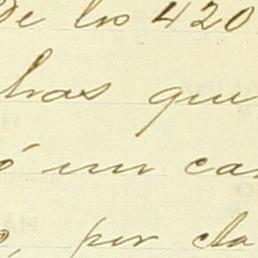 De los 420
bras que
ó un ca
, por cla